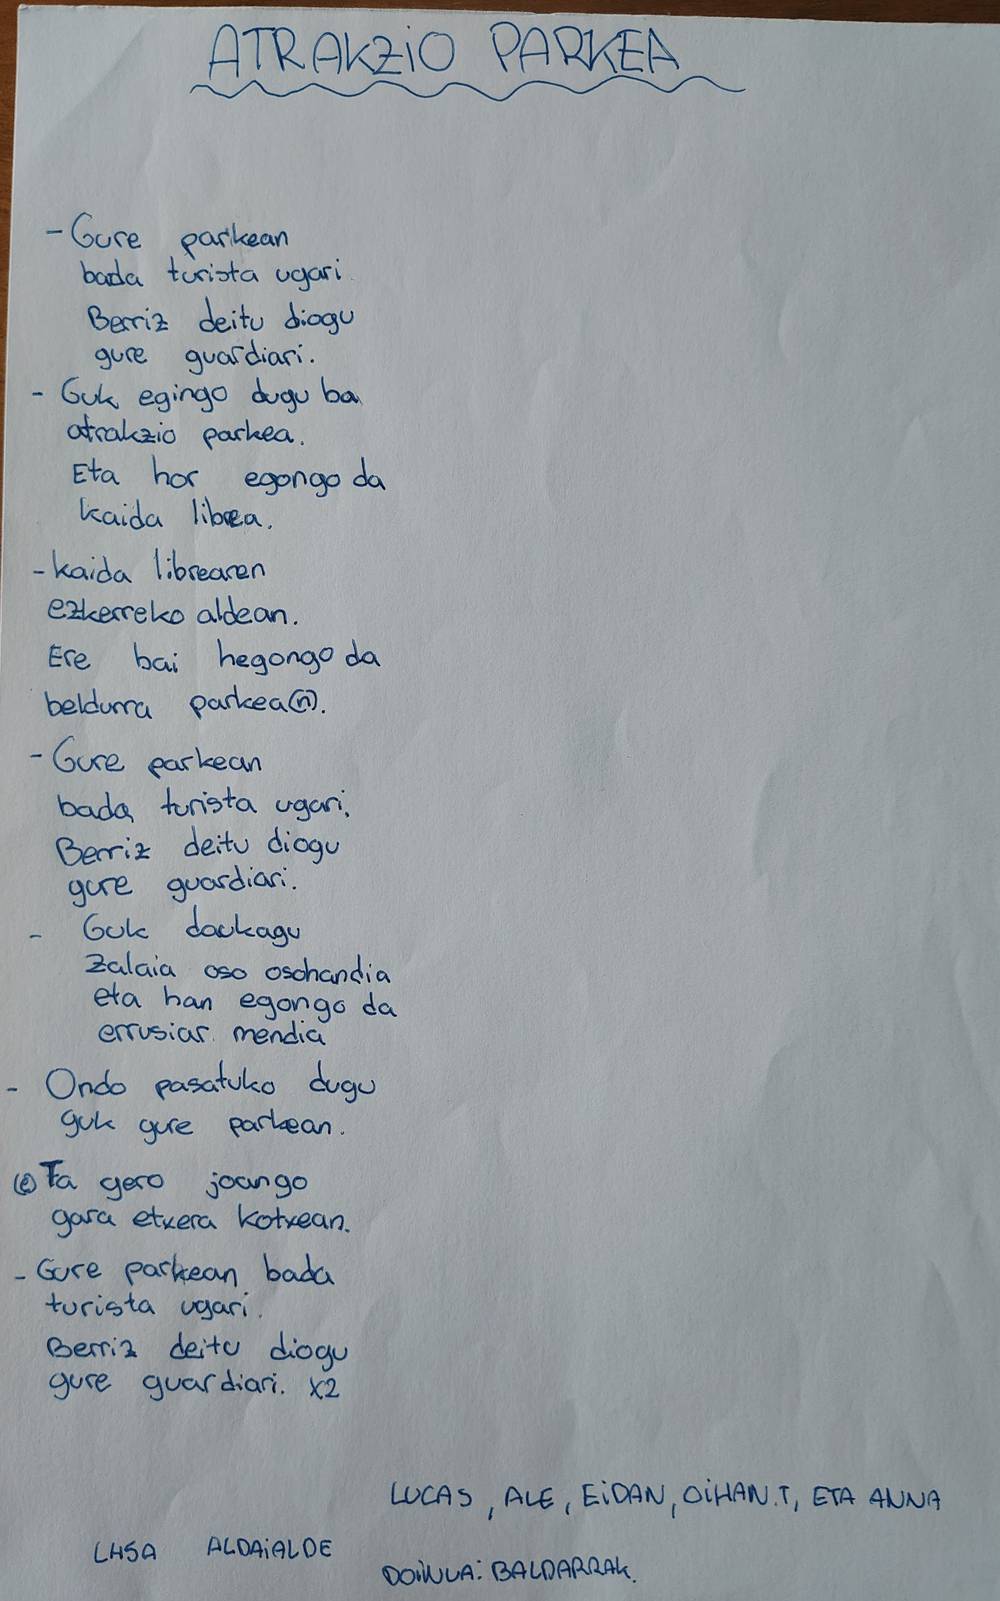 ATRAKZiO PARKEA
- Gure parkean
bada turista ugari
Berriz deitu diogu
gure guardiari.
- Guk egingo dugu ba
atrakzio parkea.
Eta hor egongo da
kaida librea.
- kaida librearen
ezkerreko aldean.
Ere bai hegongo da
beldurra parkea(n).
- Gure parkean
bada turista ugari.
Berriz deitu diogu
gure guardiari.
- Guk daukagu
zalaia oso osohandia
eta han egongo da
errusiar mendia
- Ondo pasatuko dugu
guk gure parkean.
(e)Ta gero joango
gara etxera kotxean.
- Gure parkean bada
turista ugari.
Berriz deitu diogu
gure guardiari. x2
LUCAS, ALE, EiDAN, OiHAN.T, ETA ANNA
LHSA ALDAiALDE
DOiNUA: BALDARRAK.